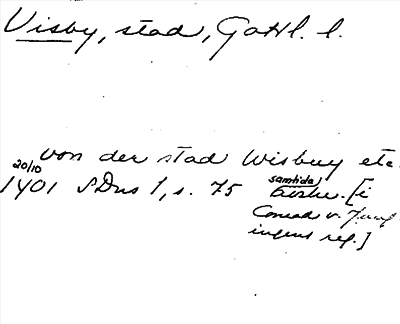 Visby, stad, Gotl. l.
von der stad Wisbuy etc.
20/10
1401 SDns 1, s. 75 samtida avskr. [i
Conrad v.
ingens reg.]